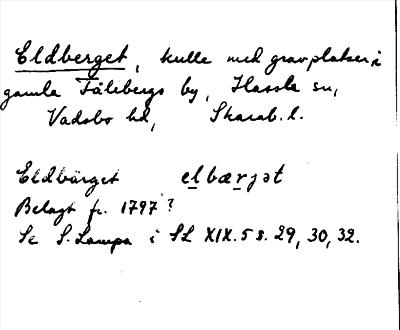 Eldberget, kulle med gravplatser i
gamla Fälebergs by, Hassle sn,
Vadsbo hd, Skarab. l.
Eldbärget elbærjət
Belagt fr. 1797?
Se S. Lampa i SL XIX. 5 s. 29, 30, 32.